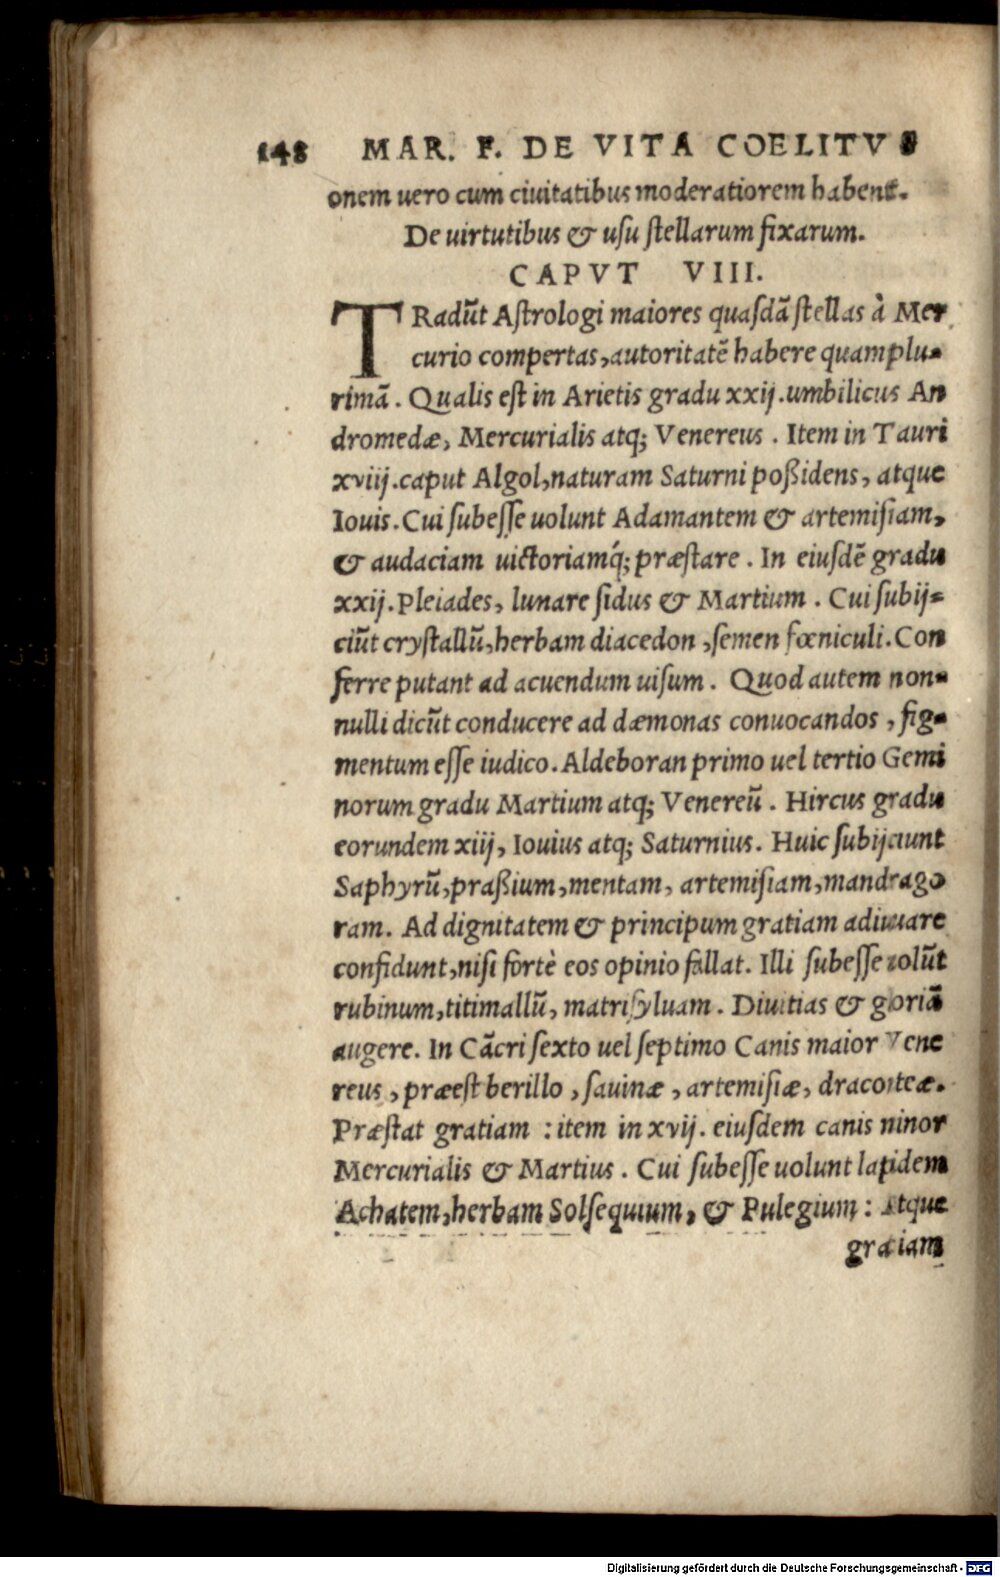 148 MAR. F. DE VITA COELITVS
onem uero cum ciuitatibus moderatiorem habent.
De uirtutibus & usu stellarum fixarum.
CAPVT VIII.
TRadũt Astrologi maiores quasdã stellas à Mer
curio compertas, autoritatẽ habere quamplu-
rimã. Qualis est in Arietis gradu xxij. umbilicus An
dromedæ, Mercurialis atq; Venereus. Item in Tauri
xviij. caput Algol, naturam Saturni poßidens, atque
Iouis. Cui subesse uolunt Adamantem & artemisiam,
& audaciam uictoriamq́; præstare. In eiusdẽ gradu
xxij. Pleiades, lunare sidus & Martium. Cui subij-
ciũt crystallũ, herbam diacedon, semen fœniculi. Con
ferre putant ad acuendum uisum. Quod autem non-
nulli dicũt conducere ad dæmonas conuocandos, fig-
mentum esse iudico. Aldeboran primo uel tertio Gemi
norum gradu Martium atq; Venereũ. Hircus gradu
eorundem xiij, Iouius atq; Saturnius. Huic subijciunt
Saphyrũ, praßium, mentam, artemisiam, mandrago
ram. Ad dignitatem & principum gratiam adiuuare
confidunt, nisi fortè eos opinio fallat. Illi subesse uolũt
rubinum, titimallũ, matrisyluam. Diuitias & gloriã
augere. In Cãcri sexto uel septimo Canis maior Vene
reus, præest berillo, sauinæ, artemisiæ, draconteæ.
Præstat gratiam : item in xvij. eiusdem canis minor
Mercurialis & Martius. Cui subesse uolunt lapidem
Achatem, herbam Solsequium, & Pulegium : atque
gratiam
Digitalisierung gefördert durch die Deutsche Forschungsgemeinschaft - DFG